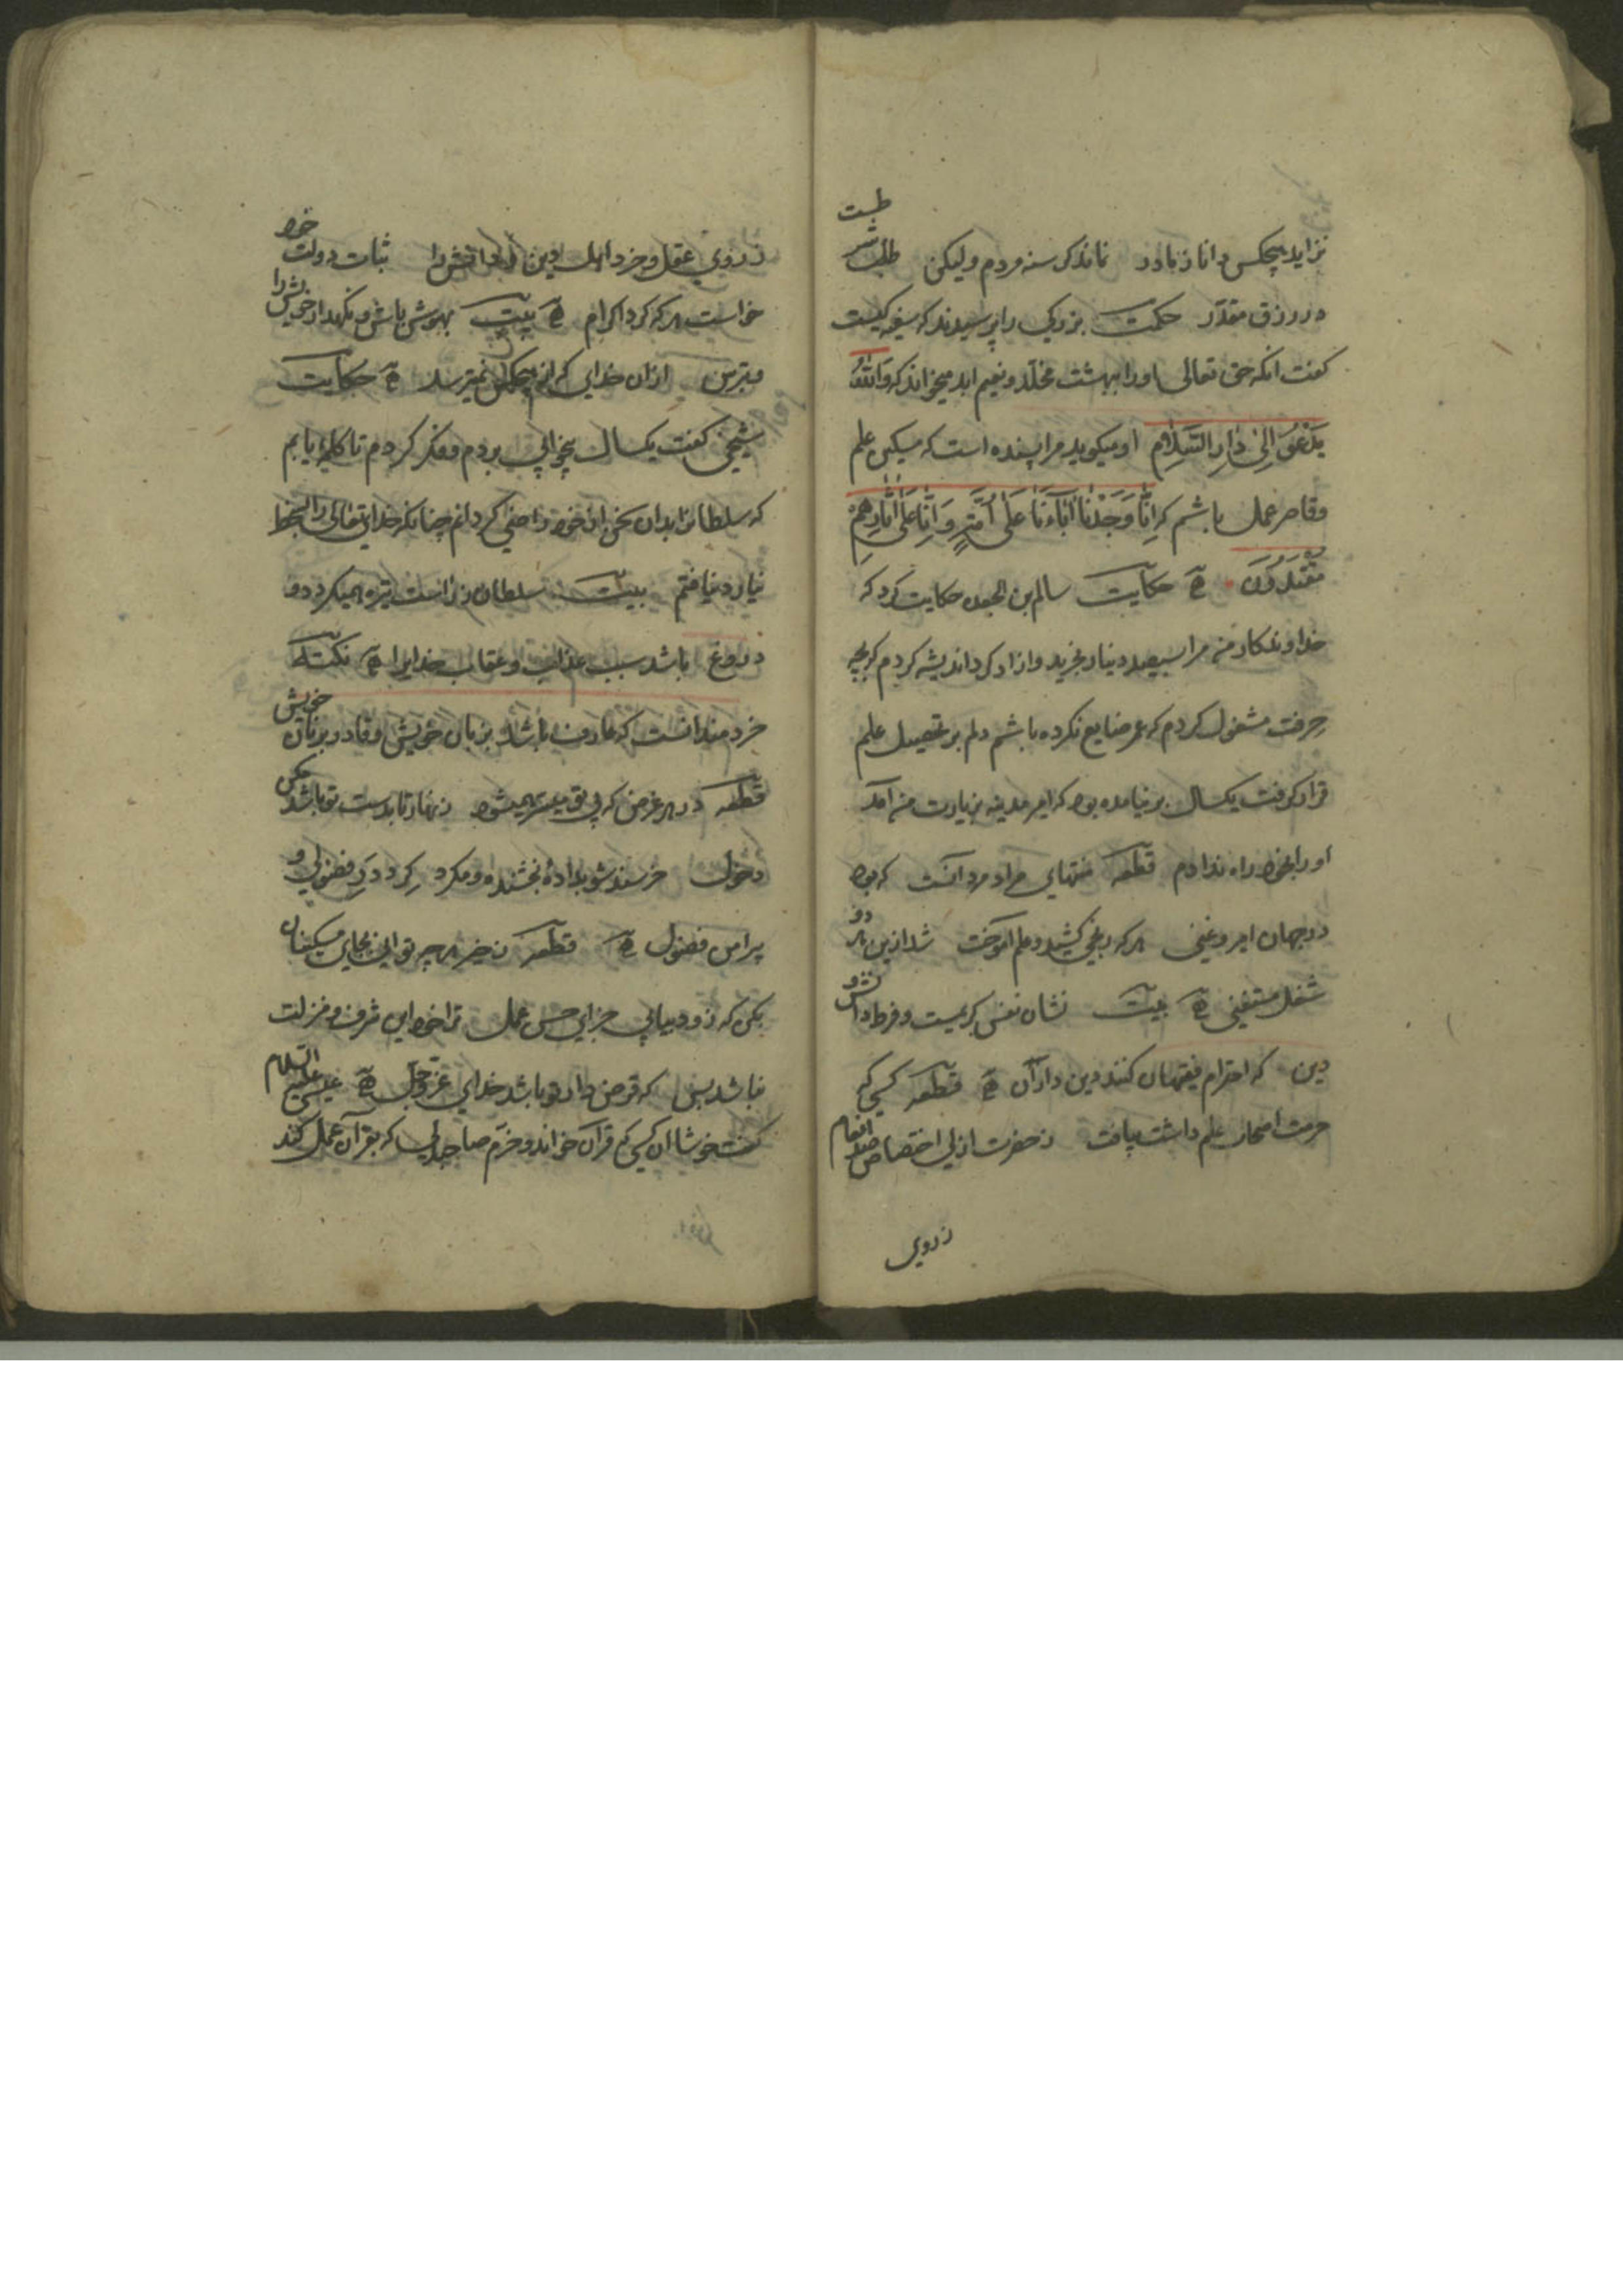 نزاید هیچکس دانا ز مادر نماند کرسنه مردم ولیکن طلب شرطست
در رزق مقدّر حکمت بزرکی را پرسیدند که سفیه کیست
کفت انکه حق تعالی اورا ببهشت مخلّد و نعیم ابد میخواند که وَاللهُ
یَدْعُو اِلیٰ دٰارِ السَّلٰامِ او میکوید مرا پسنده است که میکن علم
و قاصر عمل باشم که اِنّٰا وَجَدْنٰا اٰبٰاءَنٰا عَلٰی اُمَّةٍ وَ اِنّٰا عَلٰی اٰثٰارِهِمْ
مُقْتَدُونَ حکایت سالم بن الجعد حکایت کرد که
خداوندکار من مرا بسیصد دینار بخرید و ازاد کرد اندیشه کردم که بچه
حرفت مشغول کردم که عمر ضایع نکرده باشم دلم بر تحصیل علم
قرار کرفت یکسال بر نیامده بود که امیر مدینه بزیارت من آمد
اورا بخود راه ندادم قطعه منتهای مراد مرد آنست که بود
در جهان امیر و غنی هر که رنجی کشید و علم آموخت شد ازین هر دو
شغل مستغنی بیت نشان نفس کریمست و فرط دانش و
دین که احترام فقیهان کنند دین داران قطعه کسی که
حرمت اصحاب علم داشت بیافت ز حضرت ازلی اختصاص صد انعام
ز روی
ز روی عقل و خرد اهل دین و دانش را ثبات دولت خود
خواست هر که کرد اکرام بیت بهوش باش و نکهدار خویش را
و بترس ازان خدای که از هیچکس نمیترسد حکایت
شیخی کفت یکسال بیخوابی بردم و فکر کردم تا کلمهٔ یابم
که سلطانرا بدان سخن از خود راضی کردانم چنانکه خدای تعالی را بسخط
نیارد نیافتم بیت سلطان ز راست تیره همیکردد و
دروغ باشد سبب عذاب و عقاب خدایرا نکته
خردمند انست که عارف باشد بزبان خویش و قادر بر زبان خویش
قطعه در هر غرض که بی تو میسر همیشود زنهار تا بدست تو باشد مکن
دخول خرسند شو بدادهٔ بخشنده و مکرد کرد در فضولی و
پیرامن فضول قطعه ز خیر هر چه توانی بجای مسکینان
بکن که زود بیابی جزای حسن عمل ترا خود این شرف و منزلت
نباشد بس که قرض دار تو باشد خدای عزوجل عیسی علیه السلام
کفت خوشا ان کسی که قرآن خواند و خرّم صاحبدلی که بقرآن عمل کند